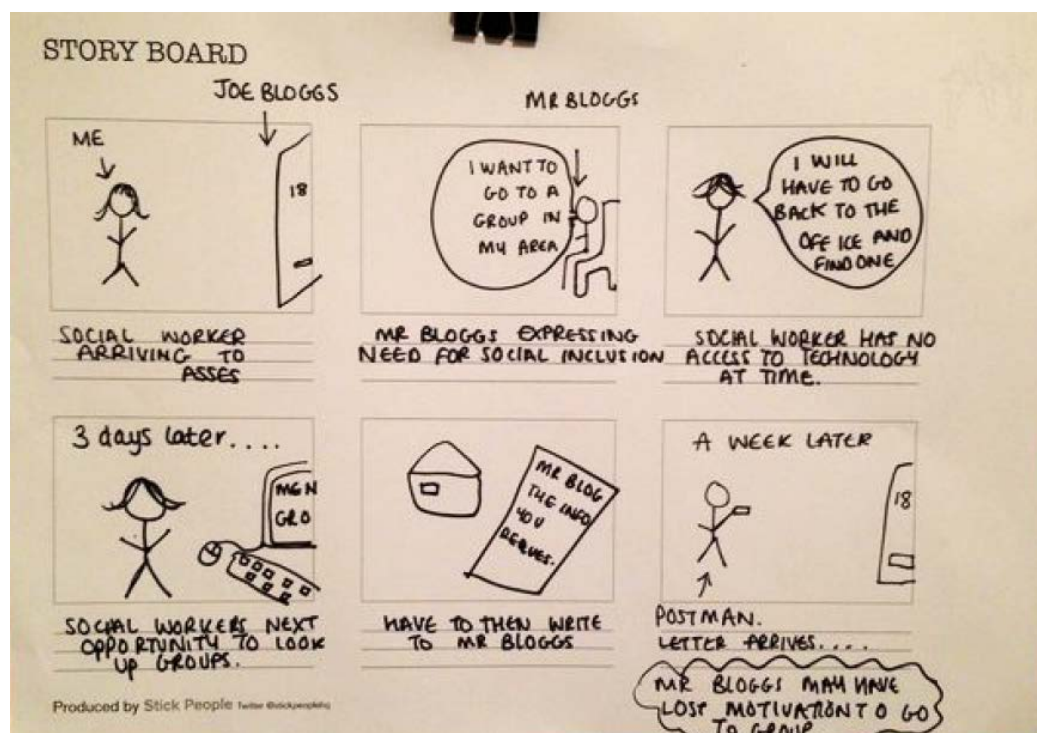 STORY BOARD
JOE BLOGGS
ME
18
SOCIAL WORKER
ARRIVING TO
ASSES
MR BLOGGS
I WANT TO
GO TO A
GROUP IN
MY AREA
MR BLOGGS EXPRESSING
NEED FOR SOCIAL INCLUSION
I WILL
HAVE TO GO
BACK TO THE
OFFICE AND
FIND ONE
SOCIAL WORKER HAS NO
ACCESS TO TECHNOLOGY
AT TIME.
3 days later....
MEN
GRO
SOCIAL WORKERS NEXT
OPPORTUNITY TO LOOK
UP GROUPS.
MR BLOG
THE INFO
YOU
REQUES.
HAVE TO THEN WRITE
TO MR BLOGGS
A WEEK LATER
18
POSTMAN.
LETTER ARRIVES....
MR BLOGGS MAY HAVE
LOST MOTIVATION TO GO
TO GROUP
Produced by Stick People Twitter @stickpeoplehq